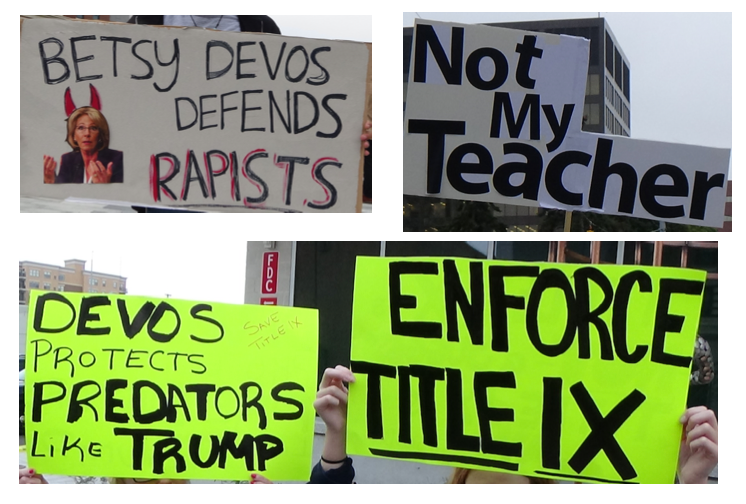 BETSY DEVOS
DEFENDS
RAPISTS
Not
My
Teacher
DEVOS
SAVE
TITLE IX
PROTECTS
PREDATORS
LIKE TRUMP
FDC
ENFORCE
TITLE IX